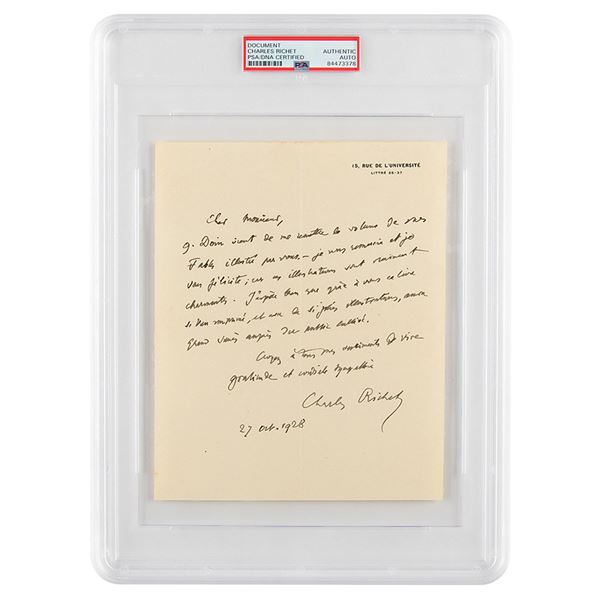 DOCUMENT
CHARLES RICHET
PSA/DNA CERTIFIED
AUTHENTIC
AUTO
84473378
PSA
15, RUE DE L'UNIVERSITÉ
LITTRÉ 55-37
Cher Monsieur,
G. Doin vient de me montrer le volume de mes
Fables illustré par vous. — je vous remercie et je
vous félicite; car ces illustrations sont vraiment
charmantes. J'espère bien que grâce à vous ce livre
si bien imprimé, et orné de si jolies illustrations, aura
grand succès auprès du public enfantin.
Croyez à tous mes sentiments de vive
gratitude et cordiale sympathie
Charles Richet
27 oct. 1928